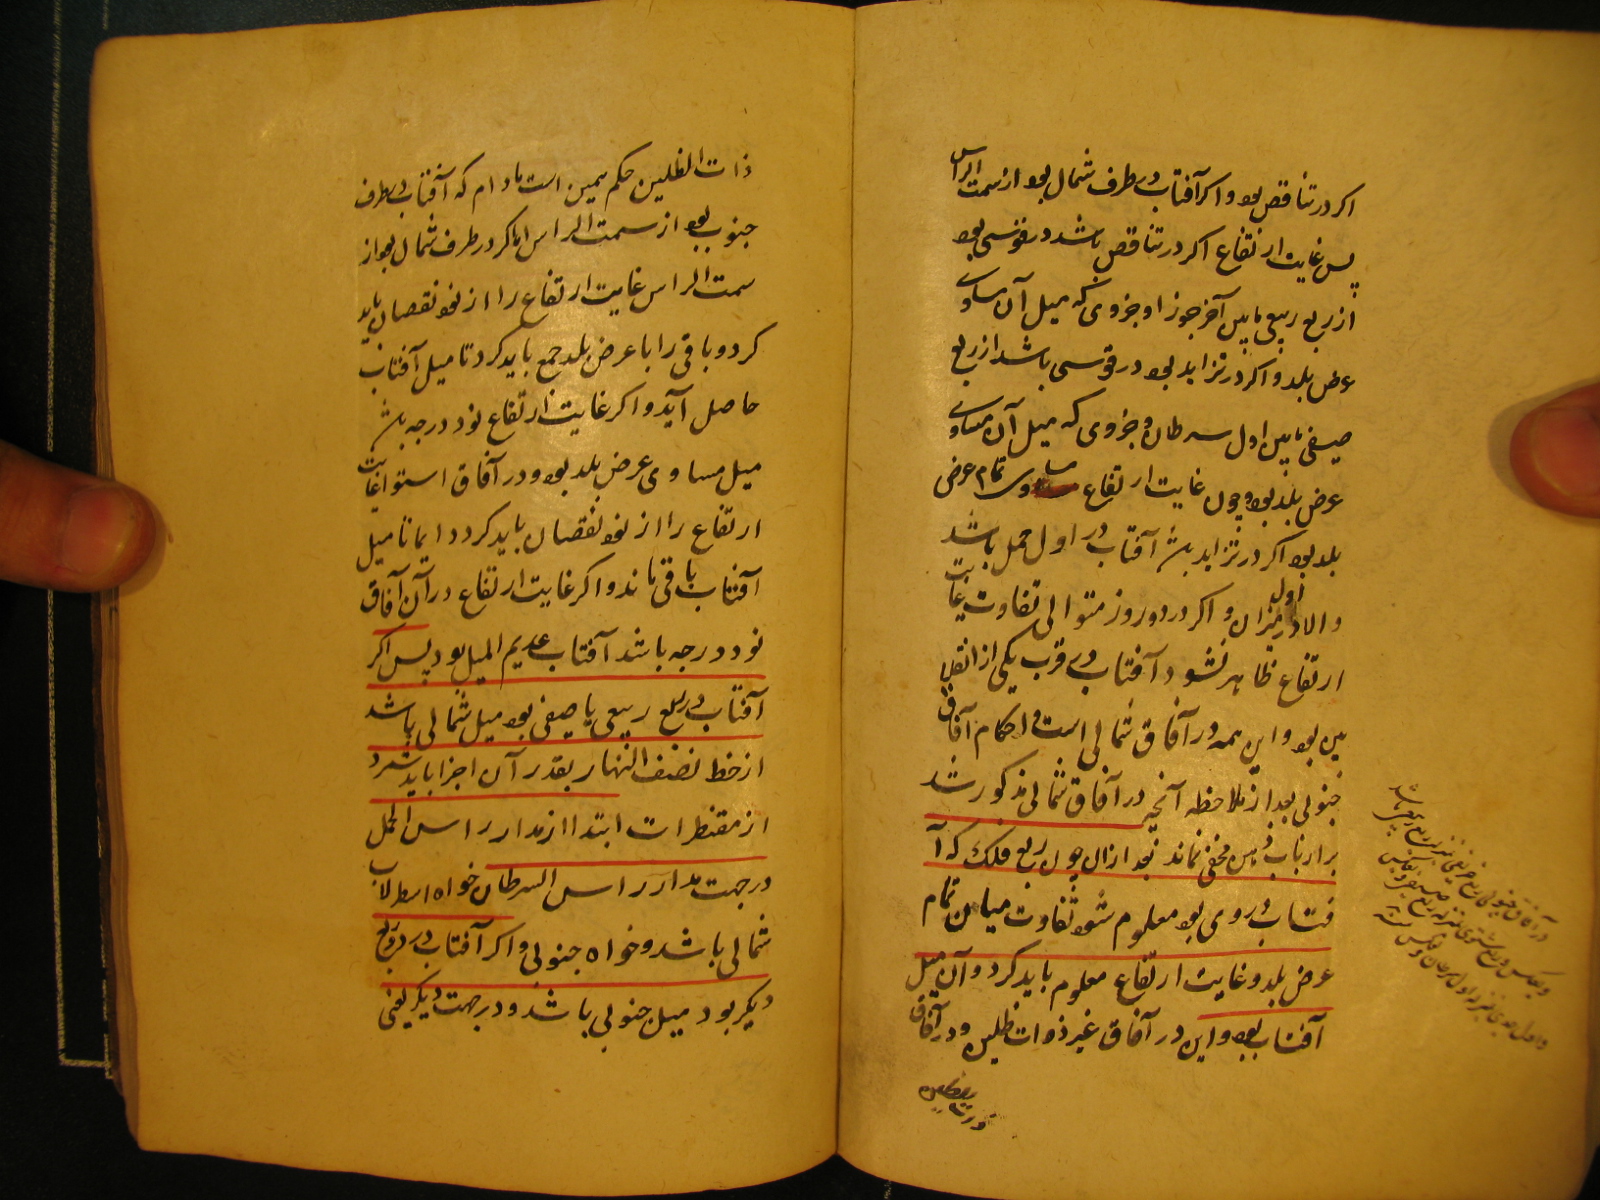 اکر در تناقص بود و اکر آفتاب در طرف شمال بود از سمت الراس
پس غایت ارتفاع اکر در تناقص باشد در قوسی بود
از ربع ربیعی مابین آخر جوزا و جزوی که میل آن مساوی
عرض بلد و اکر در تزاید بود در قوسی باشد از ربع
صیفی مابین اول سرطان و جزوی که میل آن مساوی
عرض بلد بود و چون غایت ارتفاع مساوی تمام عرض
بلد بود اکر در تزاید باشد آفتاب در اول حمل باشد
و الا در اول میزان و اکر در دو روز متوالی تفاوت غایت
ارتفاع ظاهر نشود آفتاب در قرب یکی از انقلا
بین بود و این همه در آفاق شمالی است و احکام آفاق
جنوبی بعد از ملاحظه آنچه در آفاق شمالی مذکور شد
بر ارباب ذهن مخفی نماند بعد ازان چون ربع فلک که آ
فتاب در وی بود معلوم شود تفاوت میان تمام
عرض بلد و غایت ارتفاع معلوم باید کرد و آن میل
آفتاب بود و این در آفاق غیر ذوات ظلین و در آفاق
ذات الظلین حکم همین است مادام که آفتاب در طرف
جنوب بود از سمت الراس اما کر در طرف شمال بود از
سمت الراس غایت ارتفاع را از نود نقصان باید
کرد و باقی را با عرض بلد جمع باید کرد تا میل آفتاب
حاصل آید و اکر غایت ارتفاع نود درجه باشد
میل مساوی عرض بلد بود و در آفاق استوا غایت
ارتفاع را از نود نقصان باید کرد دایما تا میل
آفتاب باقی ماند و اکر غایت ارتفاع در آن آفاق
نود درجه باشد آفتاب عدیم المیل بود پس اکر
آفتاب در ربع ربیعی یا صیفی بود میل شمالی باشد
از خط نصف النهار بقدر آن اجزا باید شمرد
از مقنطرات ابتدا از مدار راس الحمل
در جهت مدار راس السرطان خواه اسطرلاب
شمالی باشد و خواه جنوبی و اکر آفتاب در دو ربع
دیکر بود میل جنوبی باشد و در جهت دیکر یعنی